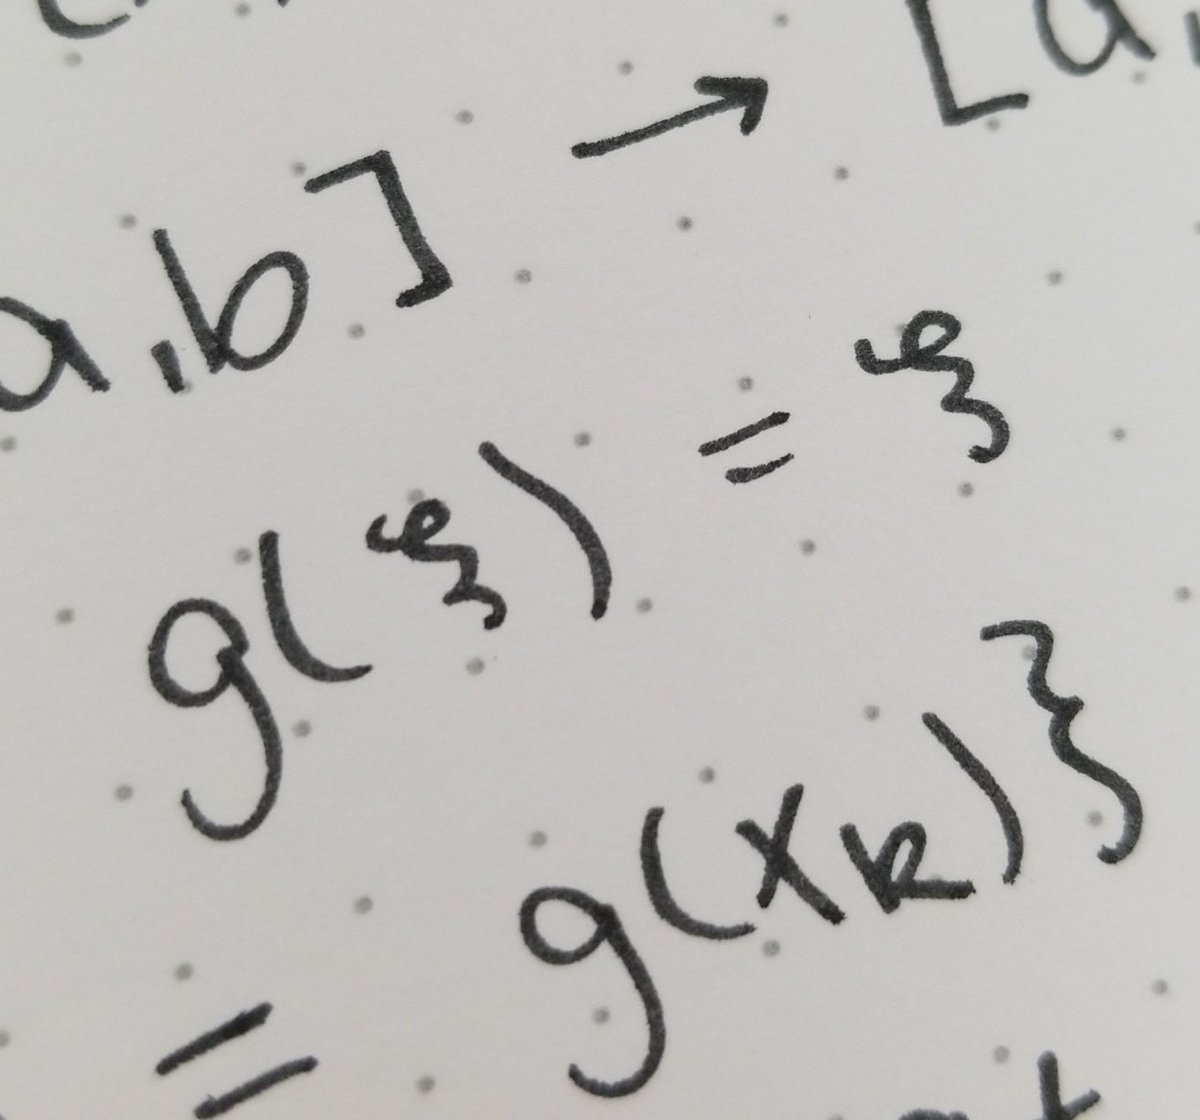 a,b] → [a,
g(ξ) = ξ
= g(x_k)}